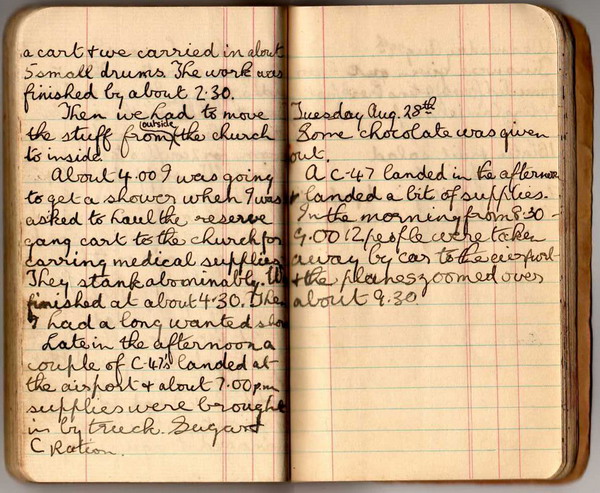 a cart & we carried in about
5 small drums. The work was
finished by about 2.30.
Then we had to move
outside
the stuff from the church
to inside.
About 4.00 I was going
to get a shower when I was
asked to haul the reserve
gang cart to the church for
carring medical supplies
They stank abominably. W
finished at about 4.30. Then
I had a long wanted sho
Late in the afternoon a
couple of C-47's landed at
the airport & about 7.00 p.m
supplies were brought
in by truck. Sugar &
C Ration.
Tuesday Aug. 28th
Some chocolate was given
out.
A C-47 landed in the afternoon
& landed a bit of supplies.
In the morning from 8.30 -
9.00 12 people were taken
away by car to the airport
& the planes zoomed over
about 9.30